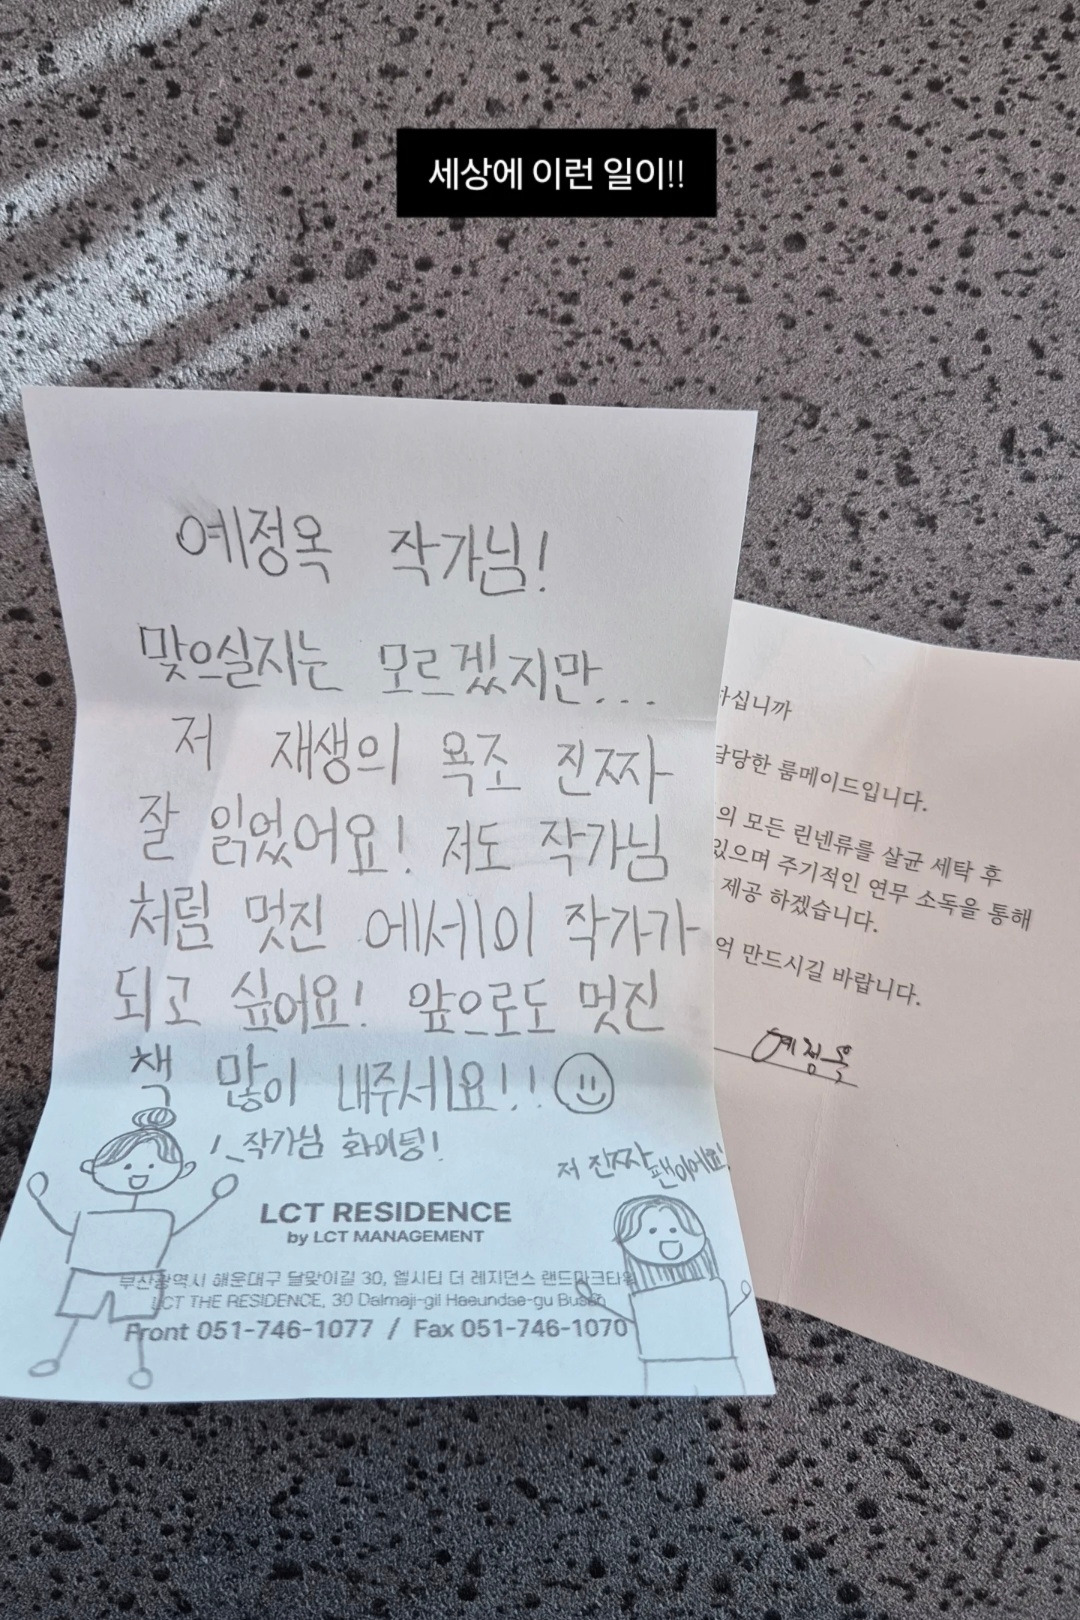 세상에 이런 일이!!
예정옥 작가님!
맞으실지는 모르겠지만...
저 재생의 욕조 진짜
잘 읽었어요! 저도 작가님
처럼 멋진 에세이 작가가
되고 싶어요! 앞으로도 멋진
책 많이 내주세요!!
작가님 화이팅!
저 진짜 팬이에요!
LCT RESIDENCE
by LCT MANAGEMENT
부산광역시 해운대구 달맞이길 30, 엘시티 더 레지던스 랜드마크타워
LCT THE RESIDENCE, 30 Dalmaji-gil Haeundae-gu Busan
Front 051-746-1077 / Fax 051-746-1070
하십니까
담당한 룸메이드입니다.
의 모든 린넨류를 살균 세탁 후
있으며 주기적인 연무 소독을 통해
제공 하겠습니다.
억 만드시길 바랍니다.
예정옥